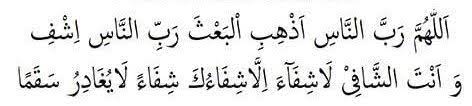 اَللّٰهُمَّ رَبَّ النَّاسِ اَذْهِبِ الْبَعْثَ رَبِّ النَّاسِ اِشْفِ
وَ اَنْتَ الشَّافِىْ لَاشِفَآءَ اِلَّاشِفَاءُكَ شِفَاءً لَايُغَادِرُ سَقَمًا